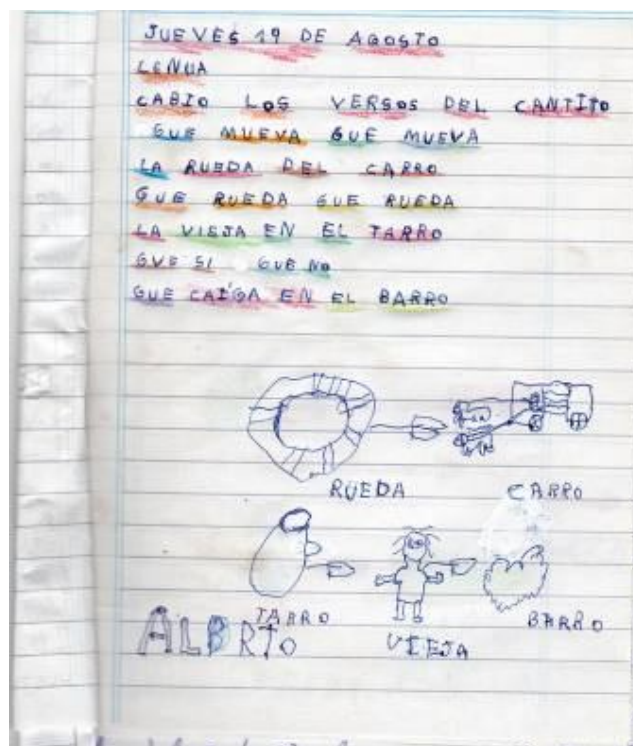 JUEVES 19 DE AGOSTO
LENUA
CABIO LOS VERSOS DEL CANTITO
GUE MUEVA GUE MUEVA
LA RUEDA DEL CARRO
GUE RUEDA GUE RUEDA
LA VIEJA EN EL TARRO
GUE SI GUE NO
GUE CAIGA EN EL BARRO
RUEDA CARRO
TARRO VIEJA BARRO
ALBRTO